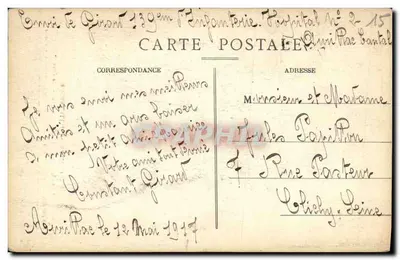 Envoi de Girard 139em d'Infanterie. Hopital N° 2 - 15
à Auri Rac Cantal
CARTE POSTALE
CORRESPONDANCE
ADRESSE
Je vous envoi mes meilleurs
amitiés et un gros baiser
a mon petit
Votre ami tout
Constant Girard
AuriRac le 12 Mai 1917
Monsieur et Madame
Jules Papillon
7 Rue Pasteur
Clichy. Seine